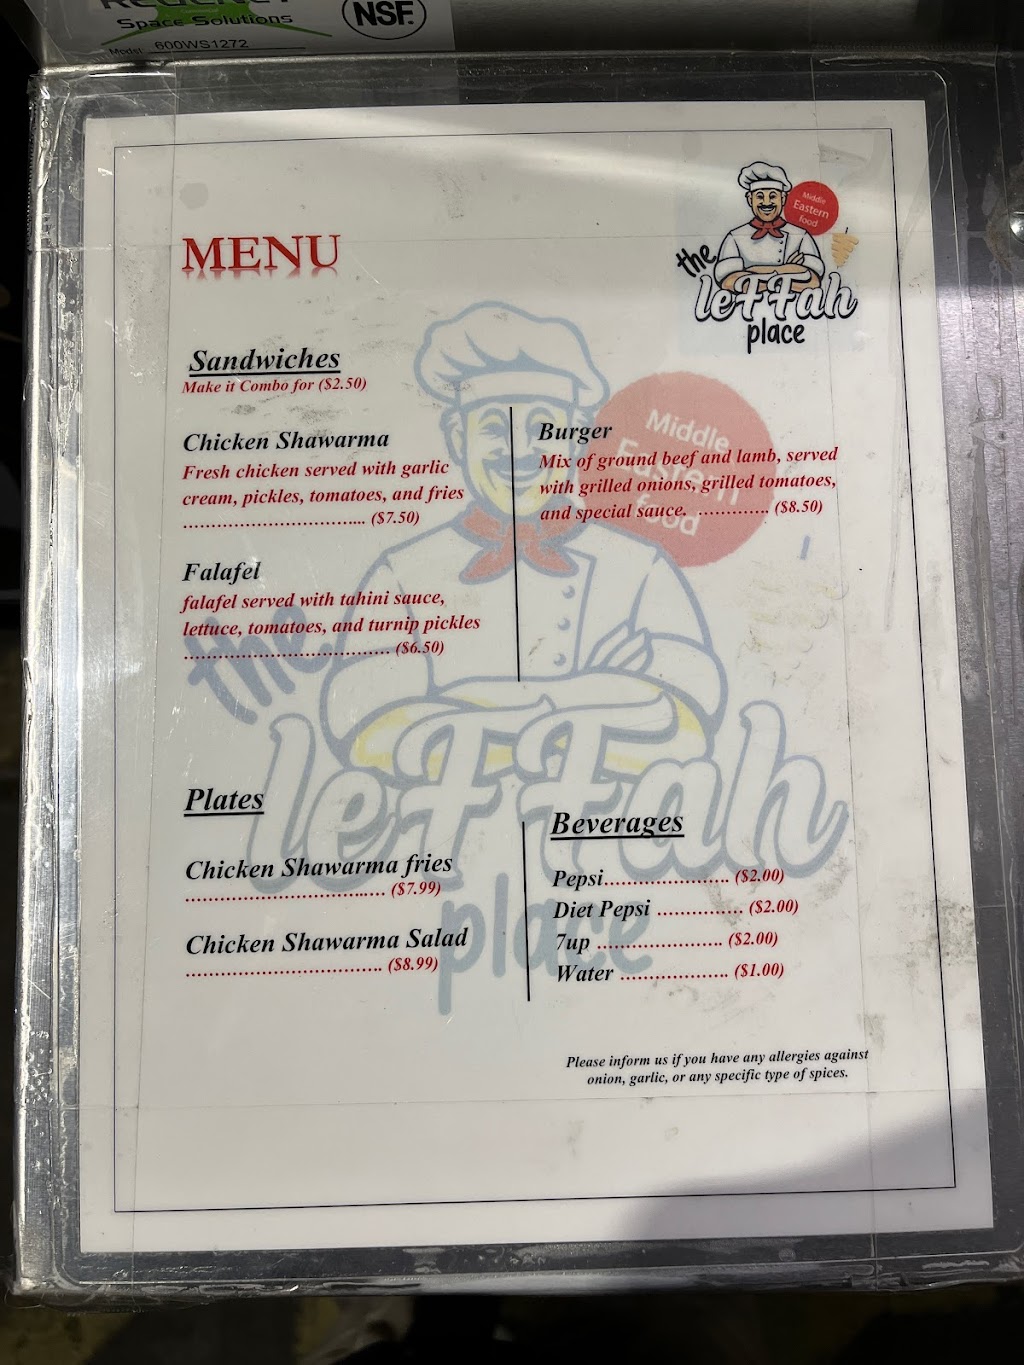 Space Solutions
Model 600WS1272
NSF
MENU
Middle
Eastern
food
the
leffah
place
Sandwiches
Make it Combo for ($2.50)
Chicken Shawarma
Fresh chicken served with garlic
cream, pickles, tomatoes, and fries
................................ ($7.50)
Falafel
falafel served with tahini sauce,
lettuce, tomatoes, and turnip pickles
.................................... ($6.50)
Burger
Mix of ground beef and lamb, served
with grilled onions, grilled tomatoes,
and special sauce. ............. ($8.50)
Middle
Eastern
food
the
leffah
place
Plates
Chicken Shawarma fries
................................... ($7.99)
Chicken Shawarma Salad
................................... ($8.99)
Beverages
Pepsi...................... ($2.00)
Diet Pepsi ............... ($2.00)
7up ...................... ($2.00)
Water ................... ($1.00)
Please inform us if you have any allergies against
onion, garlic, or any specific type of spices.